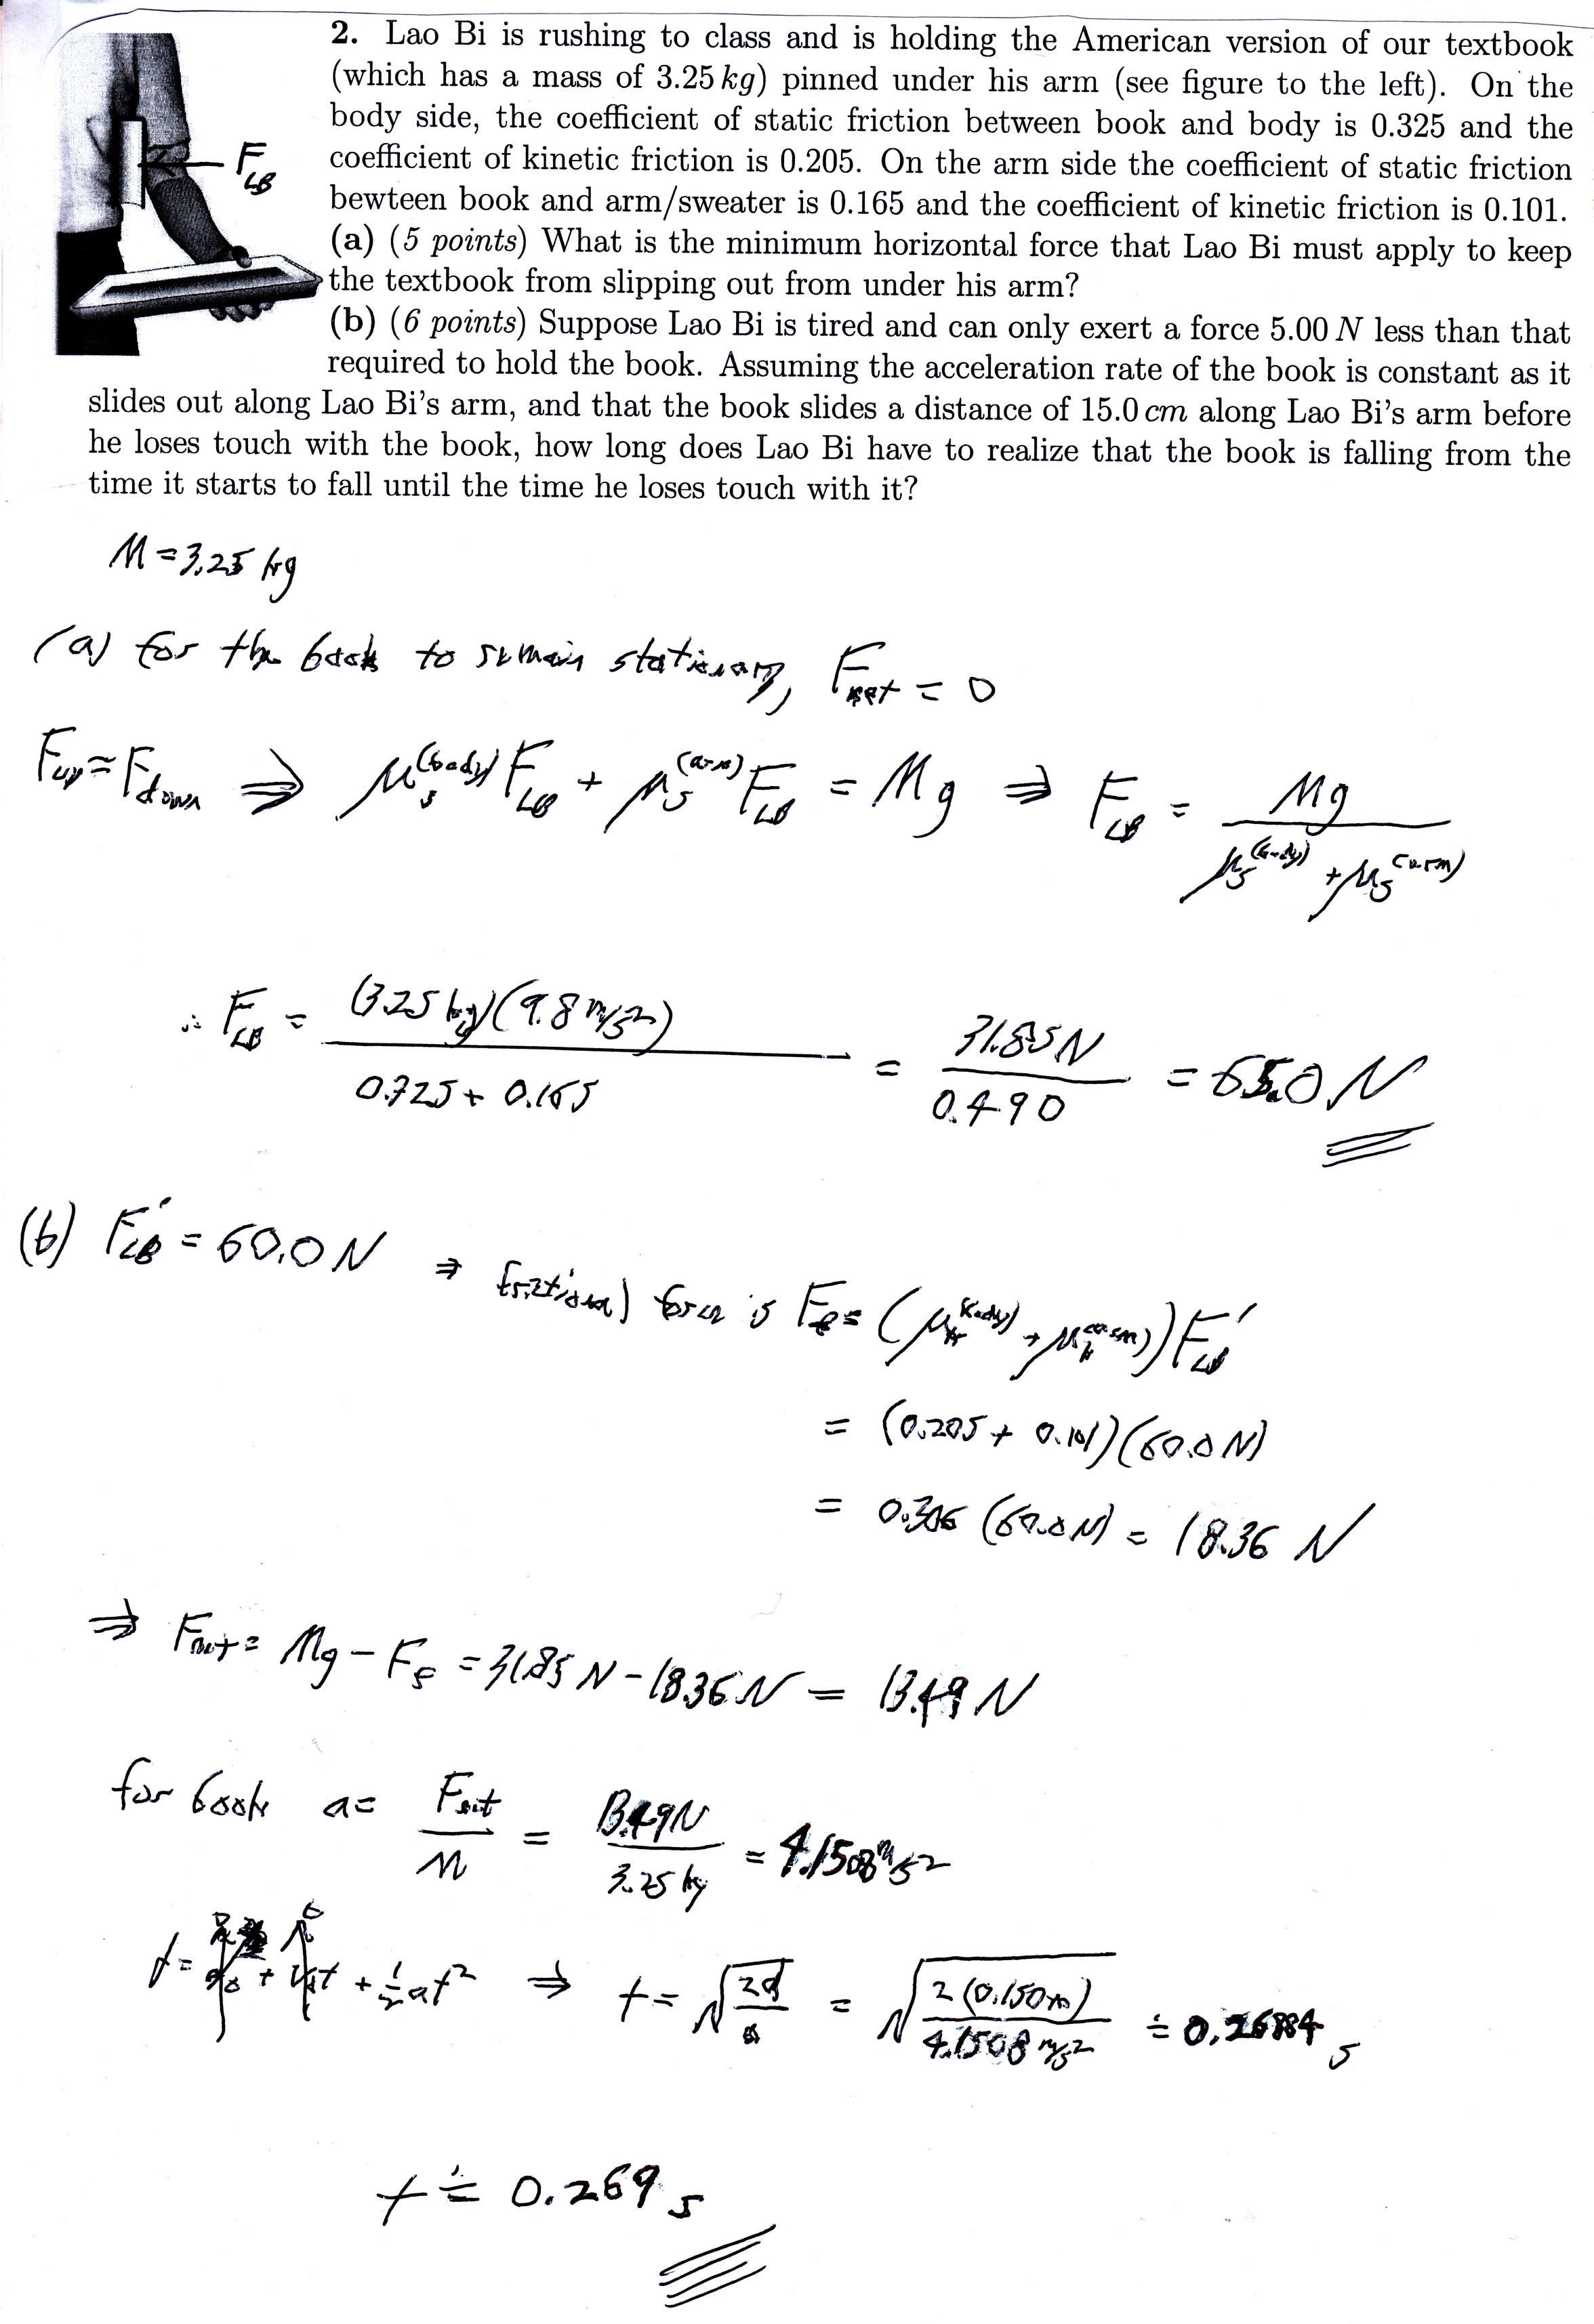 2. Lao Bi is rushing to class and is holding the American version of our textbook
(which has a mass of 3.25 kg) pinned under his arm (see figure to the left). On the
body side, the coefficient of static friction between book and body is 0.325 and the
coefficient of kinetic friction is 0.205. On the arm side the coefficient of static friction
bewteen book and arm/sweater is 0.165 and the coefficient of kinetic friction is 0.101.
(a) (5 points) What is the minimum horizontal force that Lao Bi must apply to keep
the textbook from slipping out from under his arm?
(b) (6 points) Suppose Lao Bi is tired and can only exert a force 5.00 N less than that
required to hold the book. Assuming the acceleration rate of the book is constant as it
slides out along Lao Bi's arm, and that the book slides a distance of 15.0 cm along Lao Bi's arm before
he loses touch with the book, how long does Lao Bi have to realize that the book is falling from the
time it starts to fall until the time he loses touch with it?
F_LB
M = 3.25 kg
(a) for the book to remain stationary, F_net = 0
F_up = F_down ⇒ μ_s^(body) F_LB + μ_s^(arm) F_LB = Mg ⇒ F_LB = Mg / (μ_s^(body) + μ_s^(arm))
∴ F_LB = (3.25 kg)(9.8 m/s²) / (0.325 + 0.165) = 31.85 N / 0.490 = 65.0 N
(b) F'_LB = 60.0 N ⇒ frictional force is F_f = (μ_k^(body) + μ_k^(arm)) F'_LB
= (0.205 + 0.101)(60.0 N)
= 0.306 (60.0 N) = 18.36 N
⇒ F_net = Mg − F_f = 31.85 N − 18.36 N = 13.49 N
for book a = F_net / M = 13.49 N / 3.25 kg = 4.1508 m/s²
d = + t + ½at² ⇒ t = √(2d / a) = √(2(0.150 m) / 4.1508 m/s²) ≐ 0.26884 s
t ≐ 0.269 s